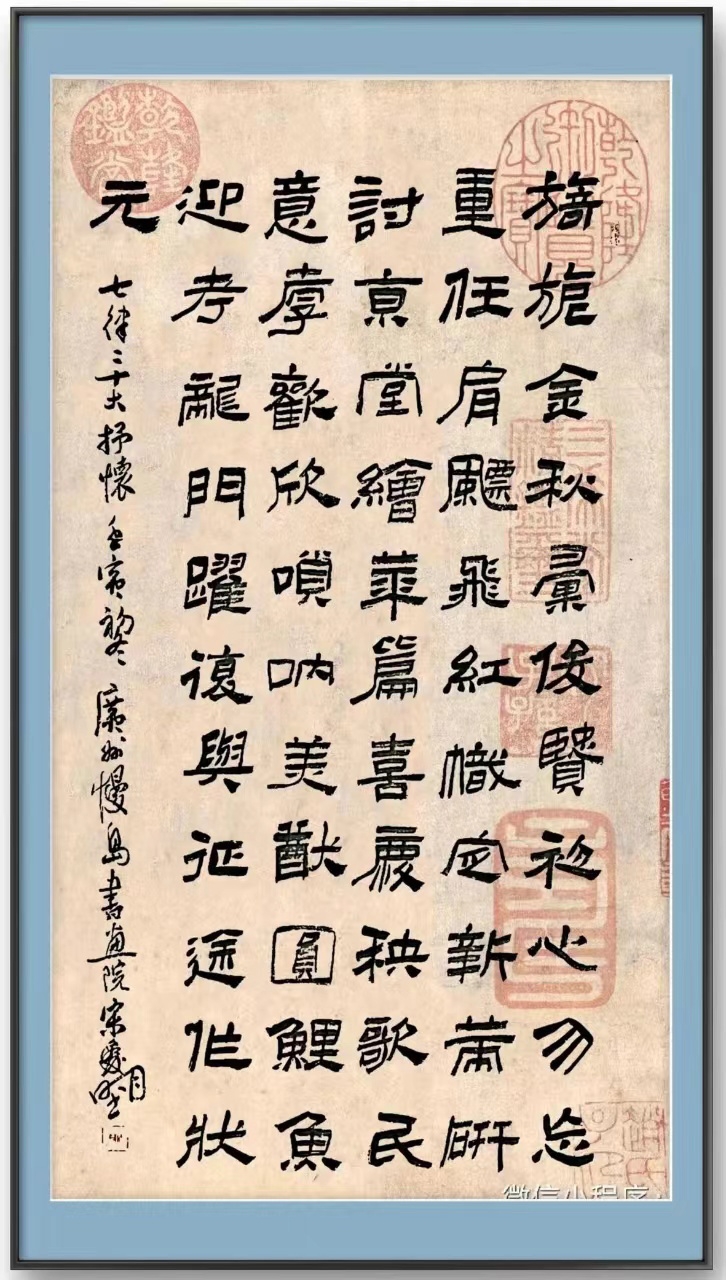 旖旎金秋彙俊賢初心勿忘
重任肩飄飛紅幟定新策研
討京堂繪華篇喜慶秧歌民
意享歡欣嗩吶美猷圓鯉魚
迎考龍門躍復興征途作狀
元
七律二十大抒懷 壬寅初冬 廣州慢島書画院宋愛
乾隆鑑賞
微信小程序